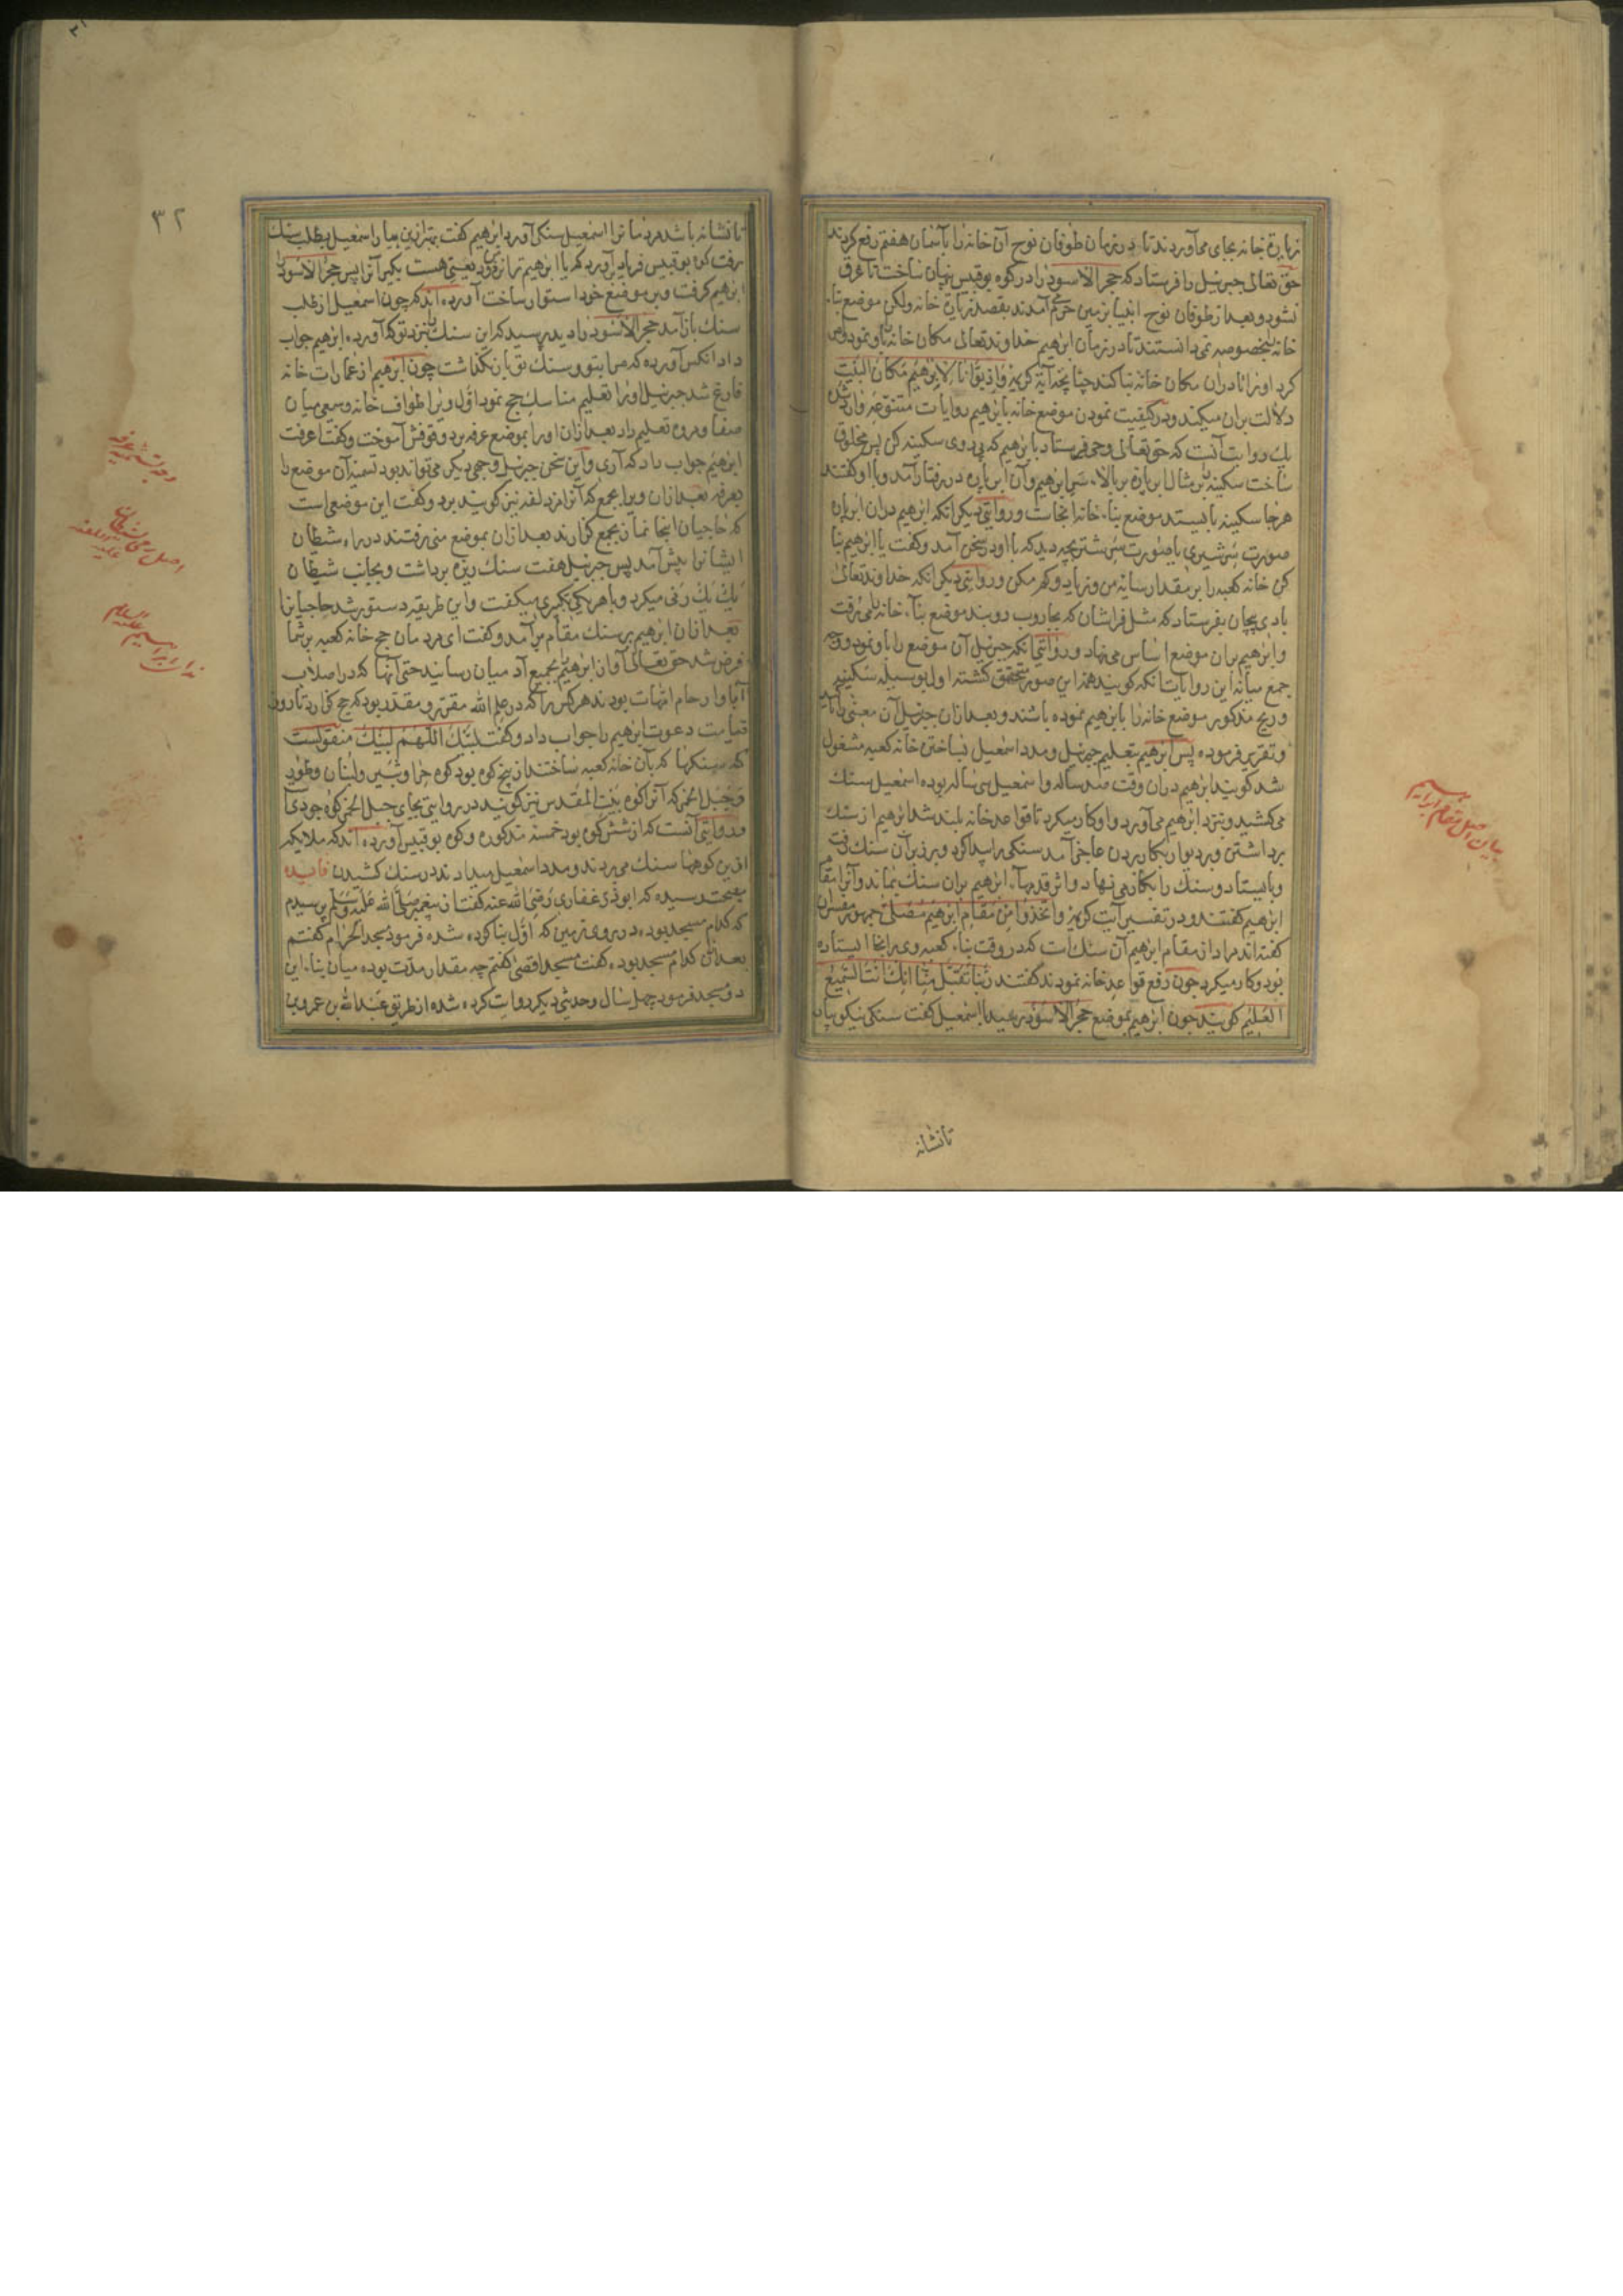 زیارة خانه بجای می‌آوردند تا در زمان طوفان نوح آن خانه را بآسمان هفتم رفع کردند
حق تعالی جبرئیل را فرستاد که حجر الاسود را در کوه بوقبیس پنهان ساخت تا غرق
نشود و بعد از طوفان نوح انبیا بزمین حرم می آمدند بقصد زیارة خانه ولکن موضع بناء
خانه بخصوصه نمی دانستند تا در زمان ابرهیم خداوند تعالی مکان خانه را باو نمود و امر
کرد او را تا دران مکان خانه بنا کند چنانچه آیة کریمه و اذ بوّانا لابرهیم مکان البیت
دلالت بران میکند و در کیفیت نمودن موضع خانه بابرهیم روایات متنوعه وارد شده
یک روایت آنست که حق تعالی وحی فرستاد بابرهیم که پی روی سکینه کن پس مخلوق
ساخت سکینه را بر مثال ابر پاره بر بالاء سر ابرهیم و آن ابر پاره در رفتار آمد و با او گفتند
هر جا سکینه بایستد موضع بناء خانه انجاست و روایتی دیگر انکه ابرهیم دران ابر پاره
صورت سر شیری یا صورت سر شتر بچه دید که با او در سخن آمد و گفت یا ابرهیم بنا
کن خانه کعبه را بر مقدار سایه من و زیاد و کم مکن و روایتی دیگر انکه خداوند تعالی
بادی پیچان بفرستاد که مثل فراشان که بجاروب روبند موضع بناء خانه را می رفت
و ابرهیم بران موضع اساس می نهاد و روایتی انکه جبرئیل آن موضع را باو نمود و وجه
جمع میانه این روایات انکه گویند همه این صور متحقق گشته اول بوسیله سکینه
و ریح مذکور موضع خانه را بابرهیم نموده باشند و بعد ازان جبرئیل آن معنی را تاکید
و تقریر فرموده پس ابرهیم بتعلیم جبرئیل و مدد اسمعیل بساختن خانه کعبه مشغول
شد گویند ابرهیم دران وقت صد ساله و اسمعیل سی ساله بوده اسمعیل سنک
می کشید و بنزد ابرهیم می آورد و او کار میکرد تا قواعد خانه بلند شد ابرهیم از سنک
برداشتن و بر دیوار بکار بردن عاجز آمد سنگی را پیدا کرد و بر زبر آن سنک رفت
و بایستاد و سنک را بکار می نهاد و اثر قدمهاء ابرهیم بران سنک بماند و آنرا مقام
ابرهیم گفتند و در تفسیر آیت کریمه و اتخذوا من مقام ابرهیم مصلّی جمهور مفسران
گفته اند مراد از مقام ابرهیم آن سنک است که در وقت بناء کعبه وی برانجا ایستاده
بود و کار میکرد چون رفع قواعد خانه نمودند گفتند ربنا تقبل منا انک انت السمیع
العلیم گویند چون ابرهیم بموضع حجر الاسود رسید با اسمعیل گفت سنگی نیکو بیار
تانشانه
بیان اصل مقام ابراهیم
۳۲
تا نشانه باشد مردمانرا اسمعیل سنگی آورد ابرهیم گفت بهتر ازین بیار اسمعیل بطلب سنک
رفت کوه بوقبیس فریاد برآورد که یا ابرهیم ترا نزد من ودیعتی هست بگیر آنرا پس حجر الاسود را
ابرهیم گرفت و بر موضع خود استوار ساخت آورده اند که چون اسمعیل از طلب
سنک باز آمد حجر الاسود را دید پرسید که این سنک را بنزد تو که آورده ابرهیم جواب
داد انکس آورده که مرا بتو و سنک تو باز نگذاشت چون ابرهیم از عمارات خانه
فارغ شد جبرئیل او را تعلیم مناسک حج نمود اول ویرا طواف خانه و سعی میان
صفا و مروه تعلیم داد بعد ازان او را بموضع عرفه برد وقوفش آموخت و گفت اعرفت
ابرهیم جواب داد که آری و این سخن جبرئیل وجهی دیگر می تواند بود تسمیه آن موضع را
بعرفه بعد ازان ویرا بجمع که آنرا مزدلفه نیز گویند برد و گفت این موضعی است
که حاجیان اینجا نماز بجمع گزارند بعد ازان بموضع منی رفتند در راه شیطان
ایشانرا پیش آمد پس جبرئیل هفت سنک ریزه برداشت و بجانب شیطان
یک یک رمی میکرد و با هر یکی تکبیری میگفت و این طریقه دستور شد حاجیانرا
بعد ازان ابرهیم بر سنک مقام برآمد و گفت ای مردمان حج خانه کعبه بر شما
فرض شد حق تعالی آواز ابرهیم را بجمیع آدمیان رسانید حتی آنها که در اصلاب
آبا و ارحام امهات بودند هر کس را که در علم الله مقرر و مقدر بود که حج گزارد تا روز
قیامت دعوت ابرهیم را جواب داد و گفت لبیک اللهم لبیک منقولست
که سنگها که بآن خانه کعبه ساختند از پنج کوه بود کوه حرا و ثبیر و لبنان و طور
و جبل الخمر که آنرا کوه بیت المقدس نیز گویند و در روایتی بجای جبل الخمر کوه جودی
و روایتی آنست که از شش کوه بود خمسه مذکوره و کوه بوقبیس آورده اند که ملایکه
ازین کوهها سنک می بردند و مدد اسمعیل میدادند در سنک کشیدن فایده
بصحت رسیده که ابو ذر غفاری رضی الله عنه گفت از پیغمبر صلی الله علیه وسلم پرسیدم
که کدام مسجد بوده در روی زمین که اول بنا کرده شده فرمود مسجد الحرام گفتم
بعد ازان کدام مسجد بوده گفت مسجد اقصی گفتم چه مقدار مدت بوده میان بناء این
دو مسجد فرمود چهل سال و حدیثی دیگر روایت کرده شده از طریق عبد الله بن عمرو بن
وجه تسمیه عرفه
اصل رمی شیطان علیه اللعنه
نداء ابراهیم علیه السلام